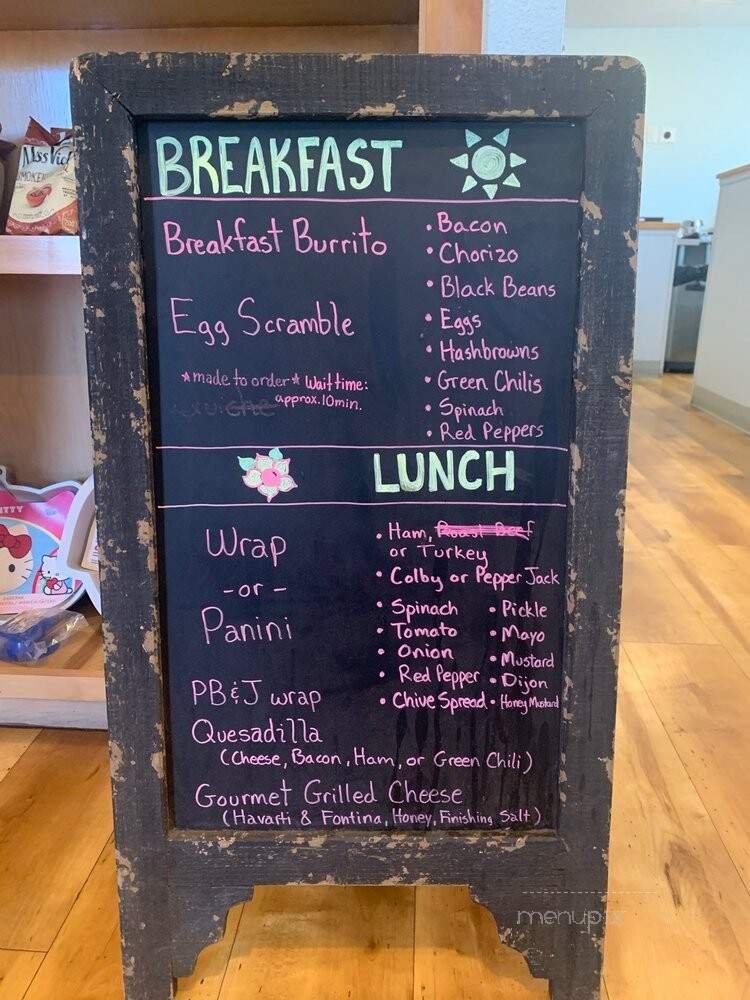 BREAKFAST
Breakfast Burrito
Egg Scramble
*made to order* Wait time:
approx. 10min.
• Bacon
• Chorizo
• Black Beans
• Eggs
• Hashbrowns
• Green Chilis
• Spinach
• Red Peppers
LUNCH
Wrap
- or -
Panini
• Ham, Roast Beef
or Turkey
• Colby or Pepper Jack
• Spinach
• Tomato
• Onion
• Red Pepper
• Chive Spread
• Pickle
• Mayo
• Mustard
• Dijon
• Honey Mustard
PB & J wrap
Quesadilla
(Cheese, Bacon, Ham, or Green Chili)
Gourmet Grilled Cheese
(Havarti & Fontina, Honey, Finishing Salt)
menupix